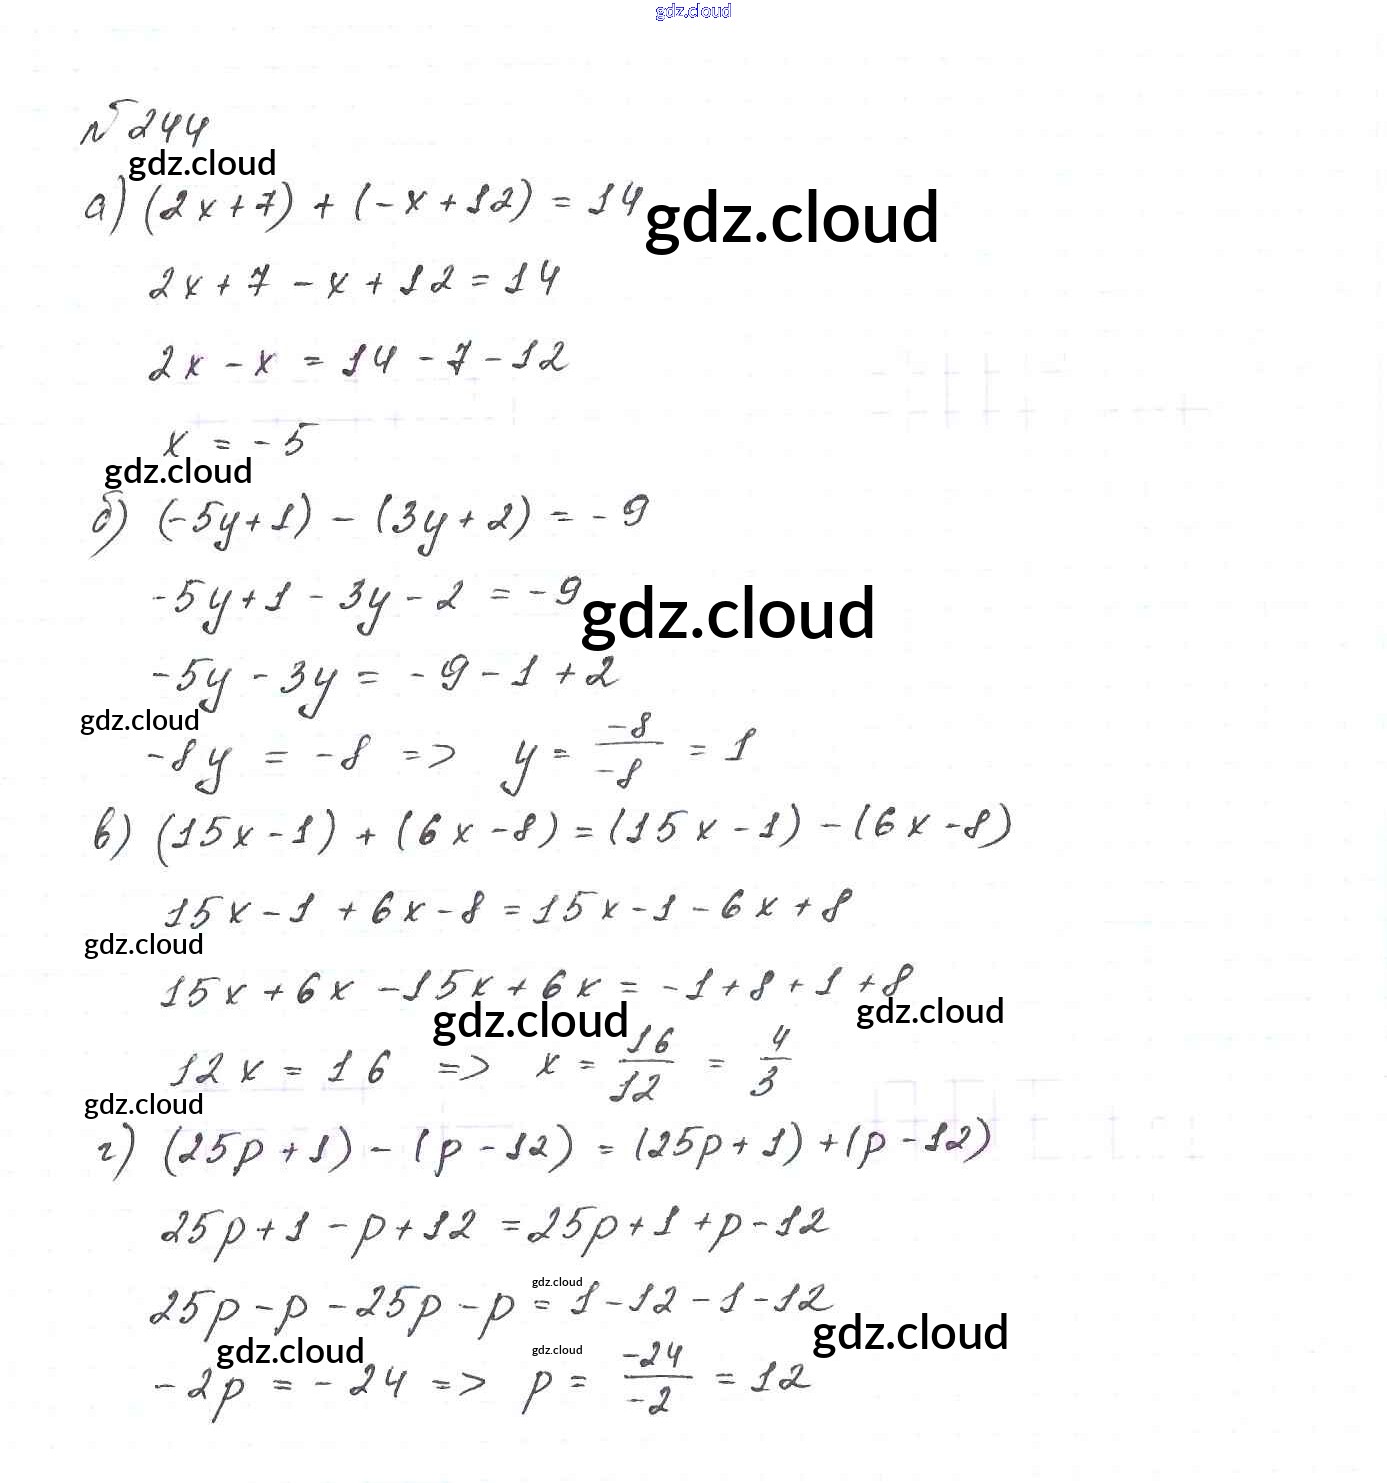 gdz.cloud
№ 244
gdz.cloud
а) (2x+7) + (-x+12) = 14
gdz.cloud
2x+7 - x + 12 = 14
2x - x = 14 - 7 - 12
x = -5
gdz.cloud
б) (-5y+1) - (3y+2) = -9
-5y+1 - 3y - 2 = -9
gdz.cloud
-5y - 3y = -9 - 1 + 2
gdz.cloud
-8y = -8 => y = -8/-8 = 1
в) (15x-1) + (6x-8) = (15x-1) - (6x-8)
15x-1 + 6x-8 = 15x-1-6x+8
gdz.cloud
15x+6x-15x+6x = -1+8+1+8
gdz.cloud
gdz.cloud
12x = 16 => x = 16/12 = 4/3
gdz.cloud
г) (25p+1) - (p-12) = (25p+1) + (p-12)
25p+1-p+12 = 25p+1+p-12
gdz.cloud
25p-p-25p-p = 1-12-1-12
gdz.cloud
gdz.cloud
gdz.cloud
-2p = -24 => p = -24/-2 = 12